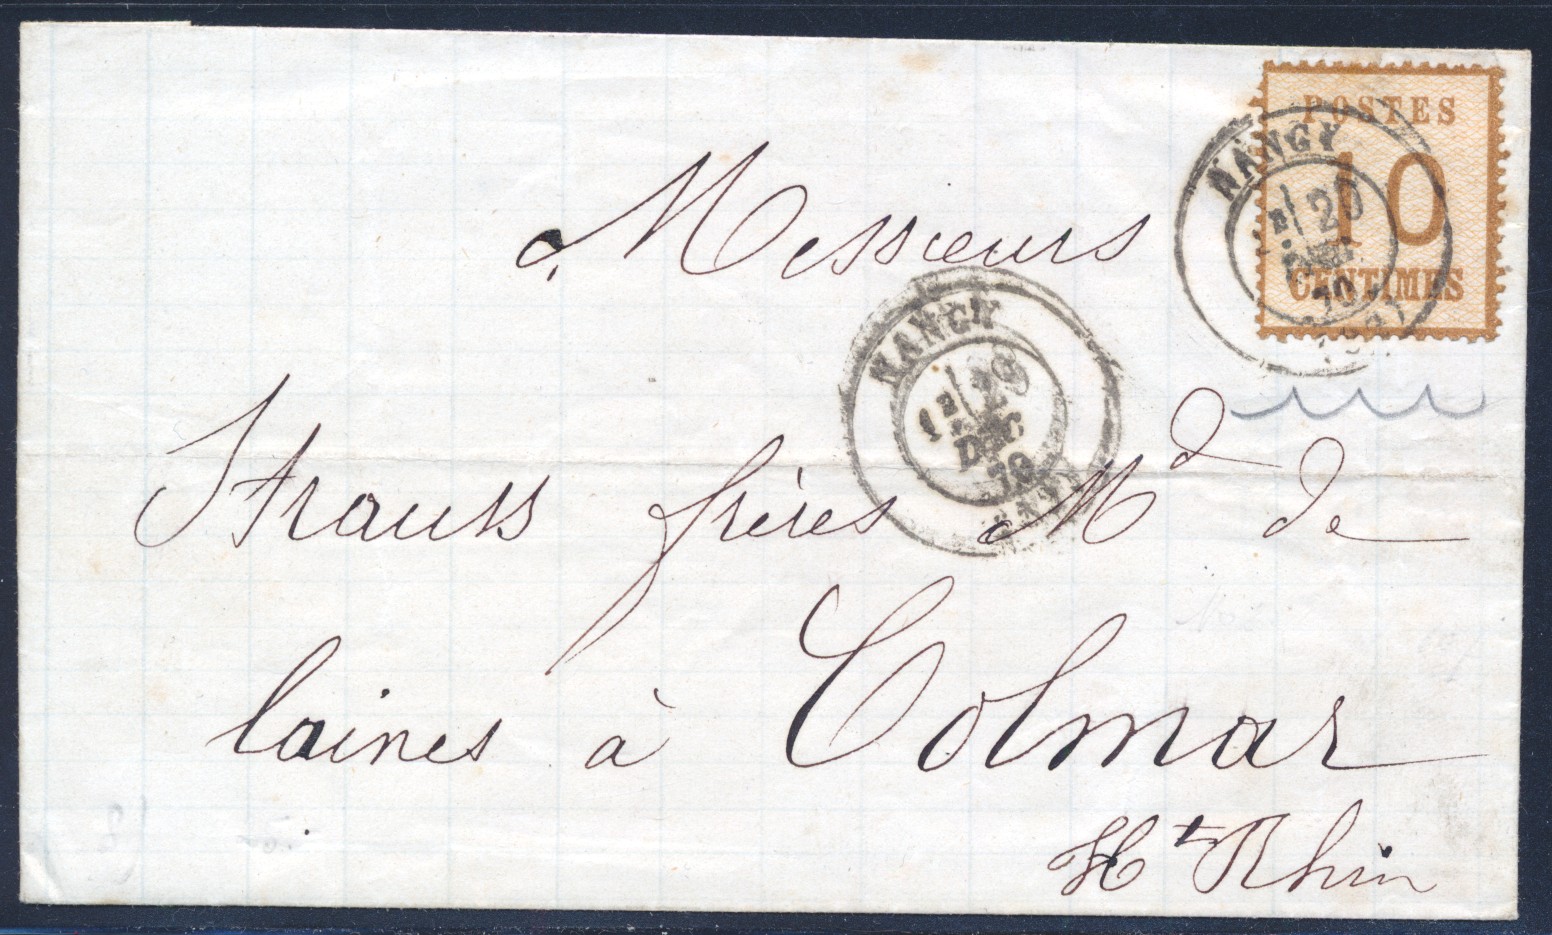 POSTES
10
CENTIMES
NANCY
20
70
Messieurs
NANCY
20
DEC
70
Strauss frères Md de
laines à Colmar
Ht Rhin